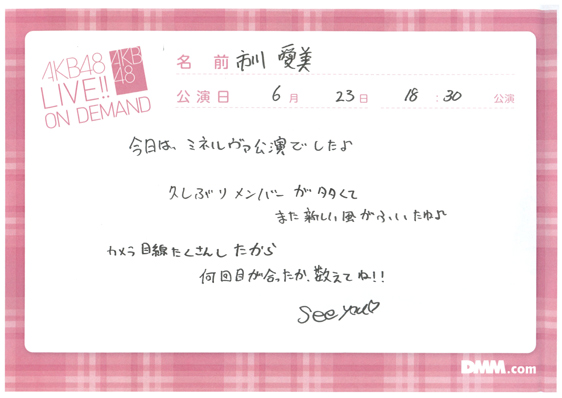 AKB48
LIVE!!
ON DEMAND
AKB
48
名 前 市川 愛美
公演日 6月 23日 18:30 公演
今日は、ミネルヴァ公演でしたよ
久しぶりメンバーが多くて
また新しい風がふいたね♪
カメラ目線たくさんしたから
何回目が合ったか、数えてね!!
See you♡
DMM.com